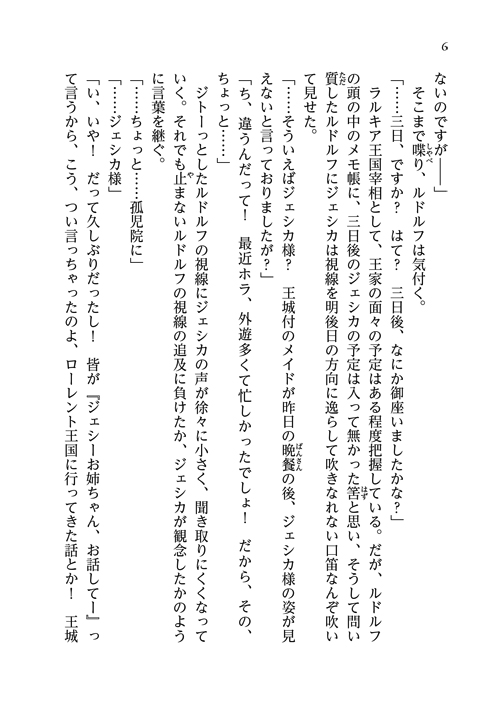 6
ないのですが――」
そこまで喋り、ルドルフは気付く。
「……三日、ですか？　はて？　三日後、なにか御座いましたかな？」
ラルキア王国宰相として、王家の面々の予定はある程度把握している。だが、ルドルフ
の頭の中のメモ帳に、三日後のジェシカの予定は入って無かった筈と思い、そうして問い
質したルドルフにジェシカは視線を明後日の方向に逸らして吹きなれない口笛なんぞ吹い
て見せた。
「……そういえばジェシカ様？　王城付のメイドが昨日の晩餐の後、ジェシカ様の姿が見
えないと言っておりましたが？」
「ち、違うんだって！　最近ホラ、外遊多くて忙しかったでしょ！　だから、その、
ちょっと……」
ジトーっとしたルドルフの視線にジェシカの声が徐々に小さく、聞き取りにくくなって
いく。それでも止まないルドルフの視線の追及に負けたか、ジェシカが観念したかのよう
に言葉を継ぐ。
「……ちょっと……孤児院に」
「……ジェシカ様」
「い、いや！　だって久しぶりだったし！　皆が『ジェシーお姉ちゃん、お話してー』っ
て言うから、こう、つい言っちゃったのよ、ローレント王国に行ってきた話とか！　王城